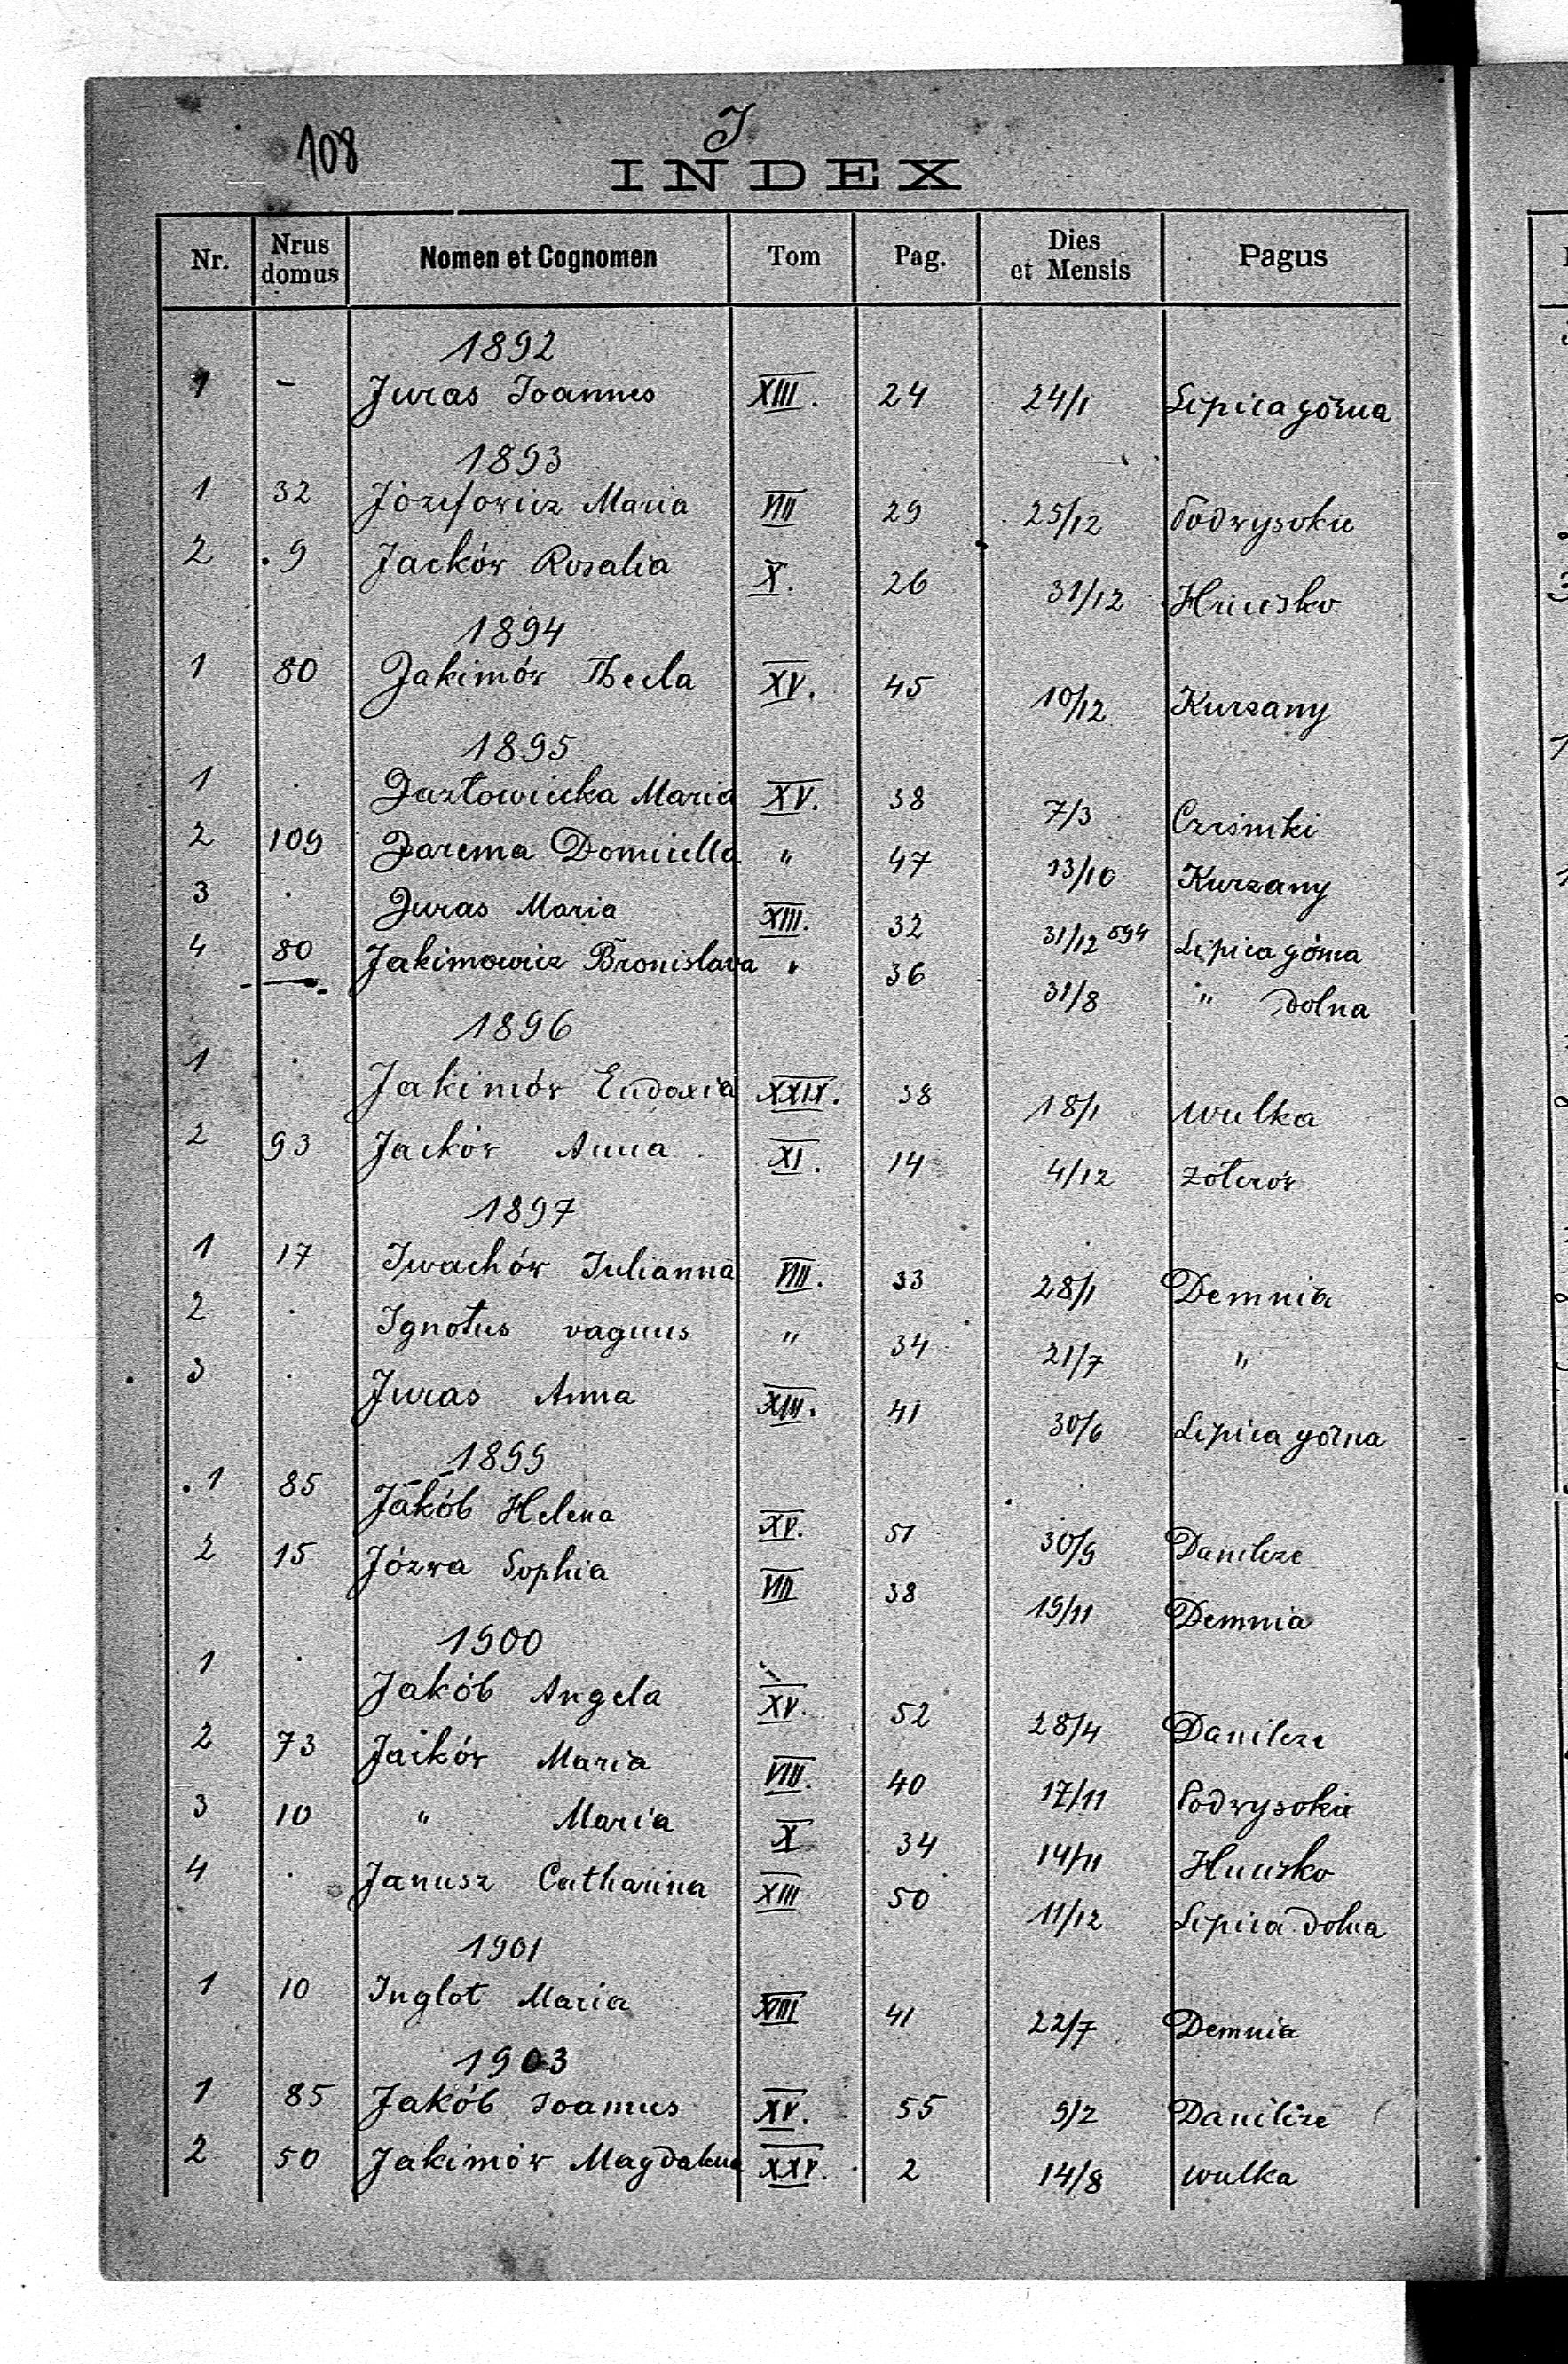 108
J
INDEX
Nr. Nrus domus Nomen et Cognomen Tom Pag. Dies et Mensis Pagus
1892
1 - Juras Joannes XIII. 24 24/1 Lipica górna
1893
1 32 Józefowicz Maria VIII 29 25/12 Podwysokie
2 9 Jacków Rosalia X. 26 31/12 Hnusko
1894
1 80 Jakimów Thecla XV. 45 10/12 Kurzany
1895
1 . Jazłowiecka Maria XV. 38 7/3 Cześniki
2 109 Jarema Domicella " 47 13/10 Kurzany
3 . Juras Maria XIII. 32 31/12 894 Lipica górna
4 80 Jakimowicz Bronislava " 36 31/8 " dolna
1896
1 . Jakimów Eudoxia XXIX. 38 18/1 Wulka
2 93 Jacków Anna XI. 14 4/12 Żołczów
1897
1 17 Iwachów Julianna VIII. 33 28/1 Demnia
2 . Ignotus vagus " 34 21/7 "
3 . Juras Anna XIII. 41 30/6 Lipica górna
1899
1 85 Jakób Helena XV. 51 30/9 Danilcze
2 15 Józwa Sophia VIII 38 19/11 Demnia
1900
1 . Jakób Angela XV. 52 28/4 Danilcze
2 73 Jacków Maria VIII. 40 17/11 Podwysokie
3 10 " Maria X 34 14/11 Hnusko
4 . Janusz Catharina XIII 50 11/12 Lipica dolna
1901
1 10 Inglot Maria VIII 41 22/7 Demnia
1903
1 85 Jakób Joannes XV. 55 9/2 Danilcze
2 50 Jakimów Magdalena XXV. 2 14/8 Wulka